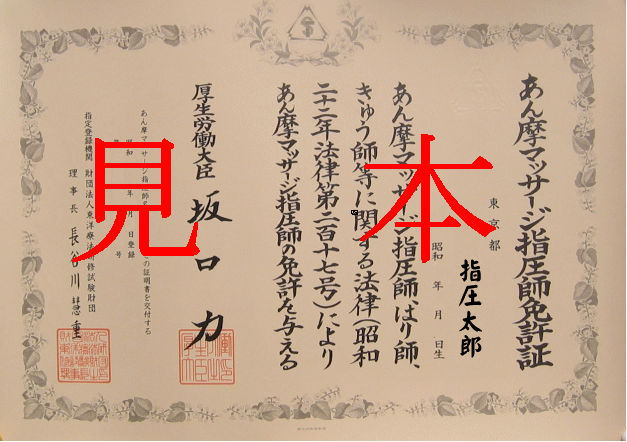 あん摩マッサージ指圧師免許証
東京都
指圧太郎
昭和 年 月 日生
あん摩マッサージ指圧師、はり師、
きゅう師等に関する法律(昭和
二十二年法律第二百十七号)により
あん摩マッサージ指圧師の免許を与える
厚生労働大臣 坂口力
あん摩マッサージ指 師 の証明書を交付する
昭和 年 月 日登録
号
指定登録機関 財団法人東洋療法研修試験財団
理事長 長谷川慧重
見本